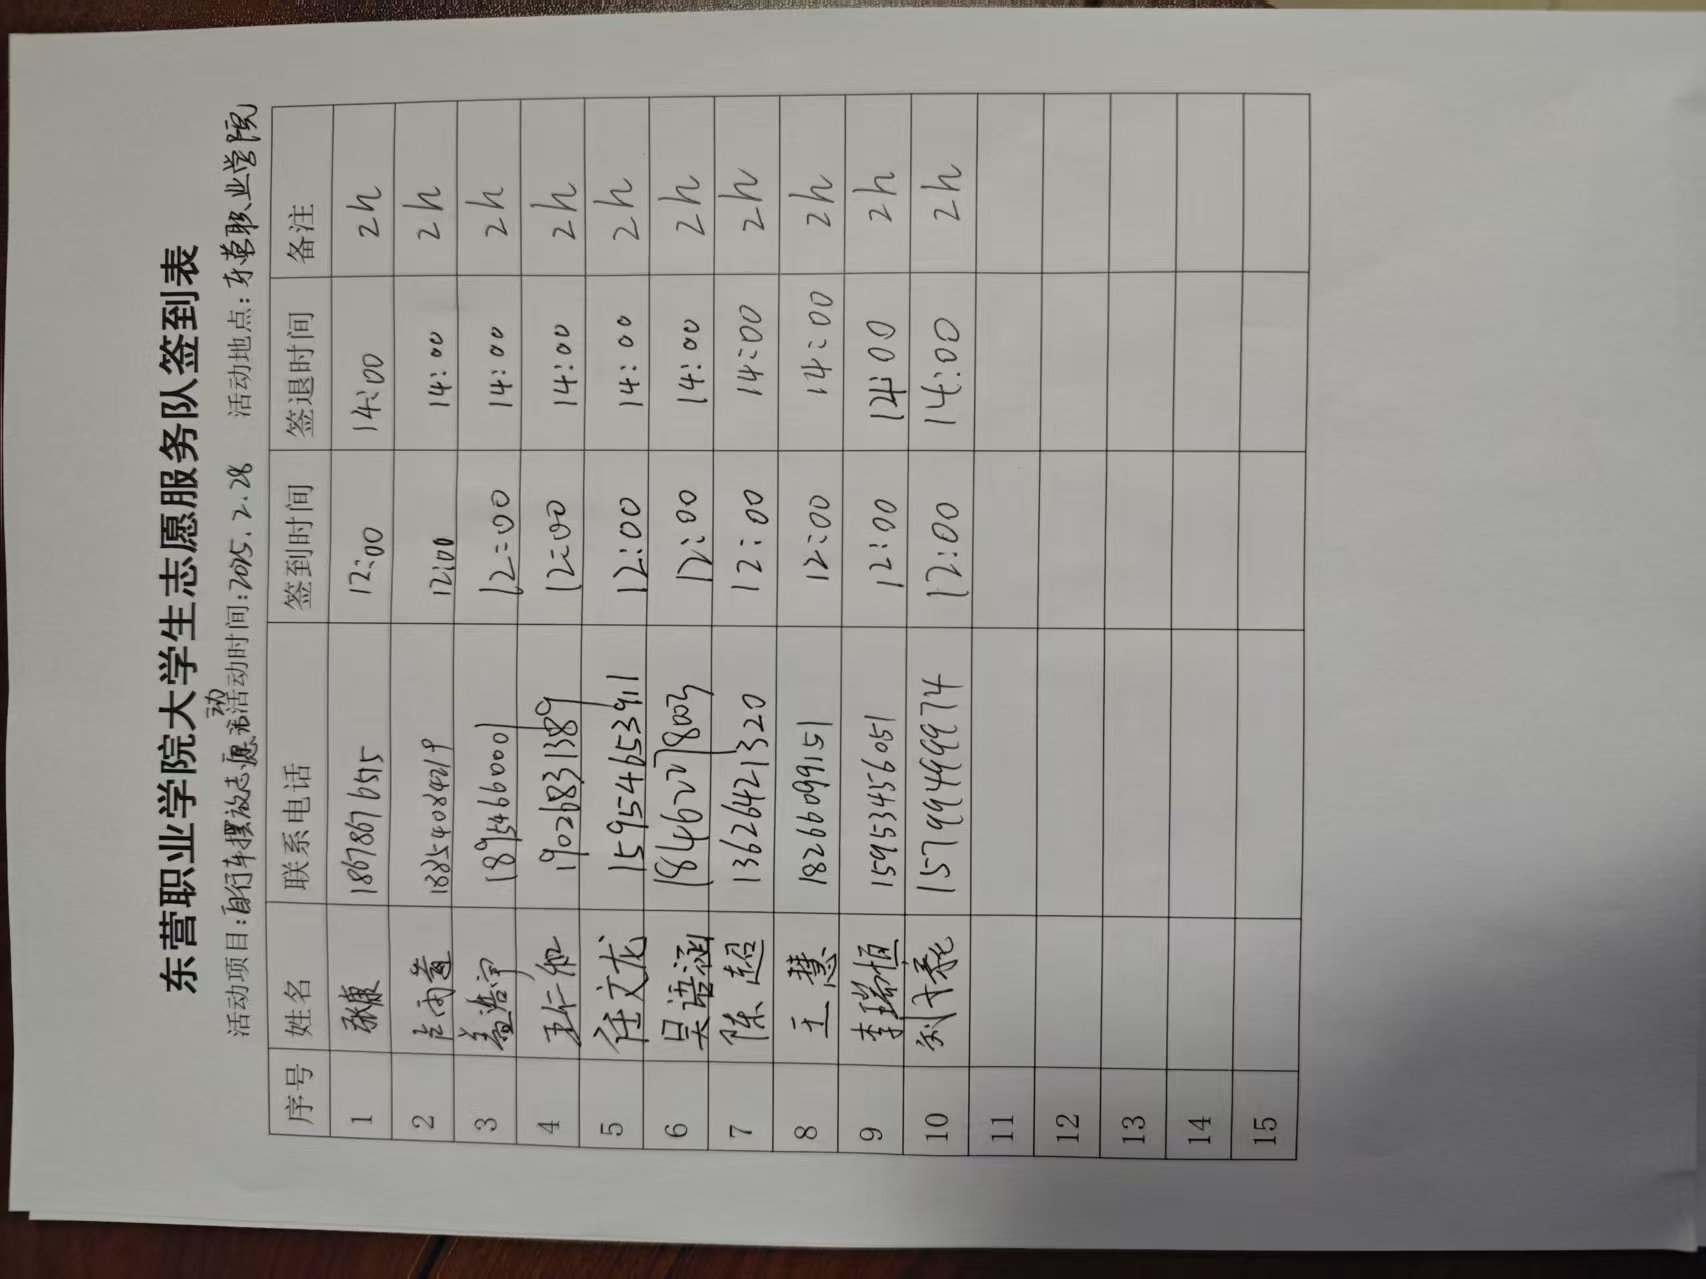 东营职业学院大学生志愿服务队签到表
活动项目:自行车摆放志愿活动 活动时间:2025.2.28 活动地点:东营职业学院
序号 姓名 联系电话 签到时间 签退时间 备注
1 张康 18678676515 12:00 14:00 2h
2 12:00 14:00 2h
3 18954660001 12:00 14:00 2h
4 王仁和 19026831389 12:00 14:00 2h
5 任文龙 15954653911 12:00 14:00 2h
6 吴语涵 12:00 14:00 2h
7 陈超 13626421320 12:00 14:00 2h
8 王慧 18266099151 12:00 14:00 2h
9 李瑞恒 15953456051 12:00 14:00 2h
10 15799499974 12:00 14:00 2h
11
12
13
14
15